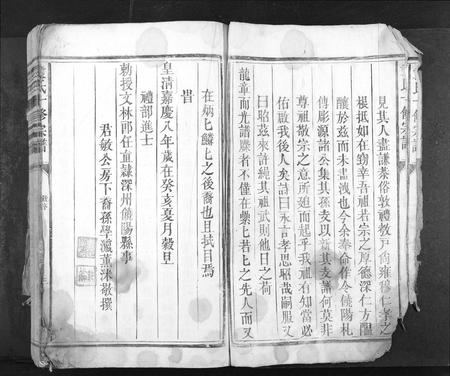 見其人盡謙柔俗敦禮教戶尚雍穆仁孝之
根抵如在竊幸吾祖若宗之厚德深仁方醞
釀於茲而未盡洩也今余奉命作令饒陽札
傳彫源諸公集其孫支以新其支譜何莫非
尊祖敬宗之意所廹而起乎我祖有知當必
佑啟我後人矣詩曰永言孝思昭哉嗣服又
曰昭茲來許繩其祖武則他日之荷
龍章而光譜牒者不僅在藥匕若匕之先人而又
在炳匕麟匕之後裔也且拭目焉
皆
皇清嘉慶八年歲在癸亥夏月穀旦
禮部進士
勅授文林郎任直隸深州饒陽縣事
君敏公房下裔孫學瀛薰沐敬撰
氏十修宗譜